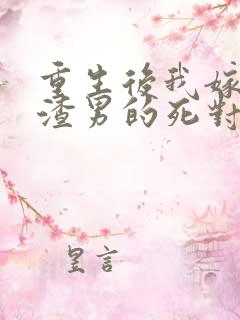 重生後我嫁
渣男的死對
昱言